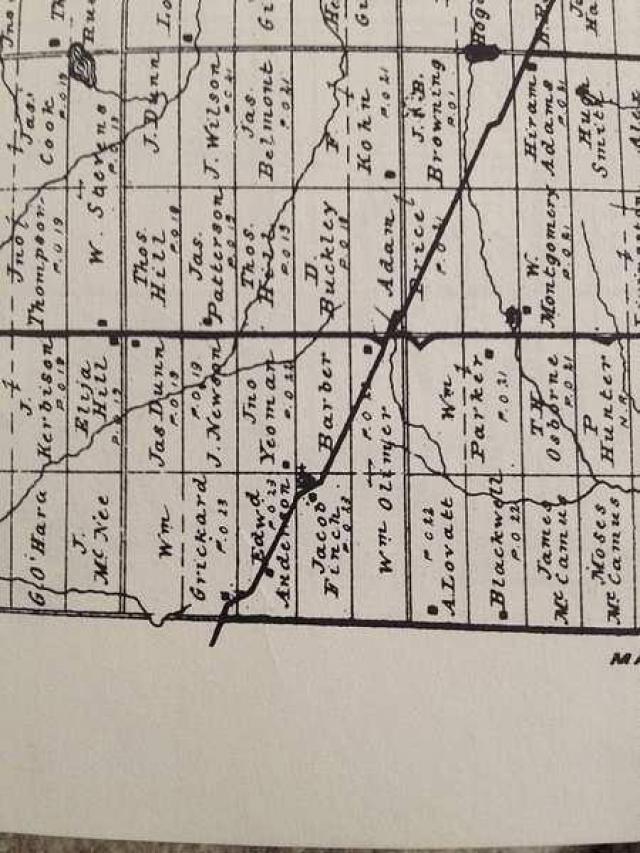 Jas. Cook
P.O 19
W. Stevens
P.O 19
J. Dunn
J. Wilson
P.O 21
Jas. Belmont
P.O 21
F Kohn
P.O 21
J.N.B. Browning
P.O 21
Hiram Adams
P.O 21
Hugh Smith
Jno Thompson
P.O 19
Thos. Hill
P.O 18
Jas. Patterson
P.O 19
Thos. Hill
P.O 19
D. Buckley
P.O 18
Adam Price
P.O 21
W. Montgomery
P.O 21
J. Kerbison
P.O 18
Elija Hill
P.O 19
Jas Dunn
P.O 19
J. Newson
P.O 19
Jno Yeoman
P.O 21
Barber
Wm Parker
P.O 21
T H Osborne
P.O 21
P Hunter
N.R
G O'Hara
J. McNee
Wm Grickard
P.O 23
Edwd Anderson
P.O 23
Jacob Finch
P.O 23
Wm Olimer
A. Lovatt
P.O 22
Blackwell
P.O 22
James McCamus
Moses McCamus
MA